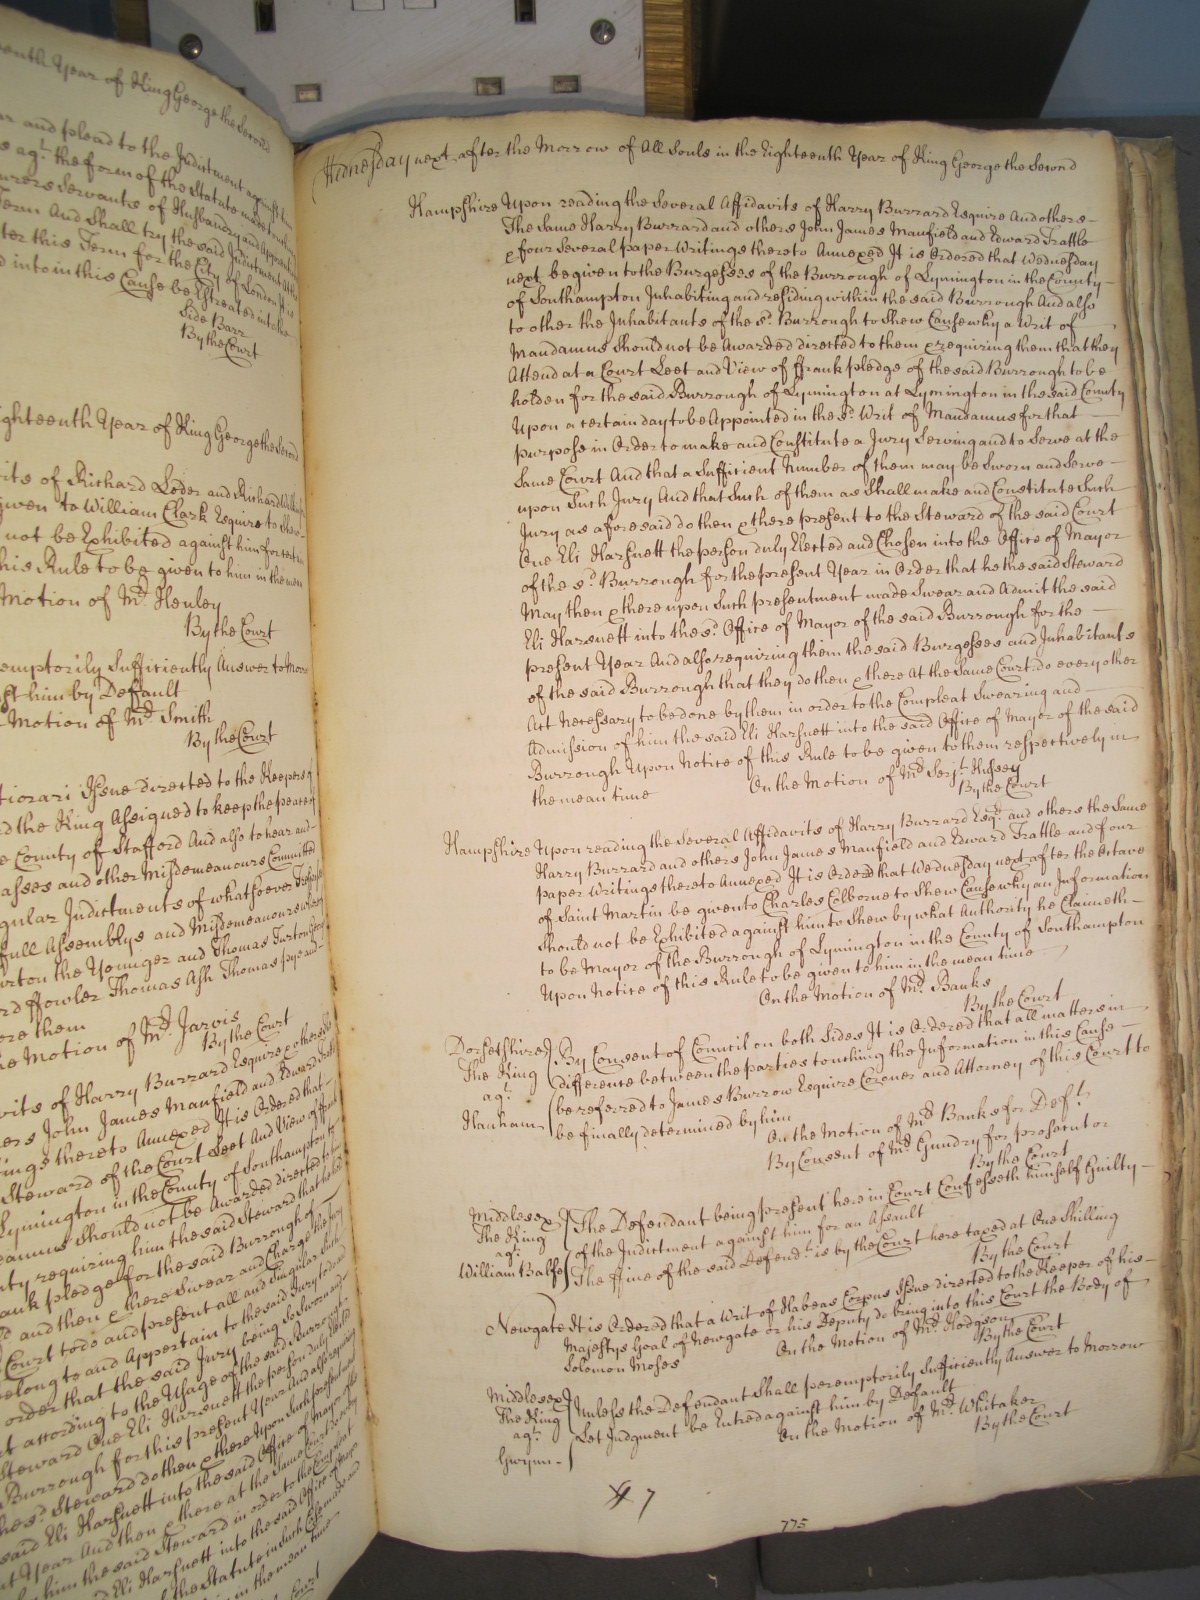 enth Year of King George the Second
and plead to the Indictment against him
agt. the form of the Statute made touching
Servants of Husbandry and Apprentices
Term And Shall try the said Indictment at the
after this Term for the City of London It is
into in this Cause be Estreated into the
Side Barr
By the Court
ighteenth Year of King George the Second
its of Richard Leder and Richard
given to William Clark Esquire to Shew
not be Exhibited against him for certain
his Rule to be given to him in the mean
Motion of Mr. Henley
By the Court
emptorily Sufficiently Answer to Morrow
him by Default
Motion of Mr. Smith
By the Court
tiorari Issue directed to the Keepers of
the King Assigned to keep the peace of
County of Stafford And also to hear and
asses and other Misdemeanours Committed
gular Indictments of whatsoever Trespasses
full Assemblys and Misdemeanours whereof
the Younger and Thomas
ffowler Thomas Ash Thomas pye and
ore them
Motion of Mr. Jarvis
By the Court
its of Harry Burrard Esquire & others the
ers John James Manfield and Edward Trattle
ings thereto Annexed It is Ordered that
Steward of the Court Leet And View of ffrank
Lymington in the County of Southampton to
damus Should not be Awarded directed to
ty requiring him the said Steward that he hold
ank pledge for the said Burrough of
and then & there Swear and Charge the Jury
Court to do and present all and Singular Such
belong to and Appertain to the said Jury to do and
order that the said Jury being So Sworn and
according to the Usage of the said Burrough
Steward One Eli Harsnett the person duly Elected
Burrough for this present Year And also requiring
the sd. Steward do then & there upon Such presentment
said Eli Harsnett into the said Office of Mayor of the
Year And then & there at the Same Court do every
him the said Steward in order to the Compleat
Eli Harsnett into the said Office of Mayor
the Statute in Such Case made and
in the mean time
Court
Wednesday next after the Morrow of All Souls in the Eighteenth Year of King George the Second
Hampshire Upon reading the Several Affidavits of Harry Burrard Esquire And others
The Same Harry Burrard and others John James Manfield and Edward Trattle
& four Several paper Writings thereto Annexed It is Ordered that Wednesday
next be given to the Burgesses of the Burrough of Lymington in the County
of Southampton Inhabiting and residing within the said Burrough And also
to other the Inhabitants of the sd. Burrough to Shew Cause why a Writ of
Mandamus Should not be Awarded directed to them & requiring them that they
Attend at a Court Leet and View of ffrank pledge of the said Burrough to be
holden for the said Burrough of Lymington at Lymington in the said County
Upon a certain day to be Appointed in the sd. Writ of Mandamus for that
purpose in Order to make and Constitute a Jury Serving and to Serve at the
Same Court And that a Sufficient Number of them may be Sworn and Serve
upon Such Jury And that Such of them as Shall make and Constitute Such
Jury as aforesaid do then & there present to the Steward of the said Court
One Eli Harsnett the person duly Elected and Chosen into the Office of Mayor
of the sd. Burrough for the present Year in Order that he the said Steward
May then & there upon Such presentment made Swear and Admit the said
Eli Harsnett into the sd. Office of Mayor of the said Burrough for the
present Year And also requiring them the said Burgesses and Inhabitants
of the said Burrough that they do then & there At the Same Court do every other
Act necessary to be done by them in order to the Compleat Swearing and
Admission of him the said Eli Harsnett into the said Office of Mayor of the said
Burrough Upon Notice of this Rule to be given to them respectively in
the mean time On the Motion of Mr. Serjt. Hussey
By the Court
Hampshire Upon reading the Several Affidavits of Harry Burrard Esqr. and others the Same
Harry Burrard and others John James Manfield and Edward Trattle and four
paper Writings thereto Annexed It is Ordered that Wednesday next after the Octave
of Saint Martin be given to Charles Colborne to Shew Cause why an Information
Should not be Exhibited against him to Shew by what Authority he Claimeth
to be Mayor of the Burrough of Lymington in the County of Southampton
Upon Notice of this Rule to be given to him in the mean time
On the Motion of Mr. Banks
By the Court
Dorsetshire By Consent of Council on both Sides It is Ordered that all matters in
The King difference between the parties touching the Information in this Cause
agt. be referred to James Burrow Esquire Coroner and Attorney of this Court to
Hanham be finally determined by him
On the Motion of Mr. Banks for Deft.
By Consent of Mr. Gundry for prosecutor
By the Court
Middlesex The Defendant being present here in Court Confesseth himself Guilty
The King of the Indictment against him for an Assault
agt.
William Balfe The ffine of the said Defendt. is by the Court here taxed at One Shilling
By the Court
Newgate It is Ordered that a Writ of Habeas Corpus Issue directed to the Keeper of his
Majestys Goal of Newgate or his Deputy to bring into this Court the Body of
Solomon Moses On the Motion of Mr. Hodgson
By the Court
Middlesex Unless the Defendant Shall peremptorily Sufficiently Answer to Morrow
The King Let Judgment be Entred against him by Default
agt. On the Motion of Mr. Whitaker
Gwynn By the Court
7
775